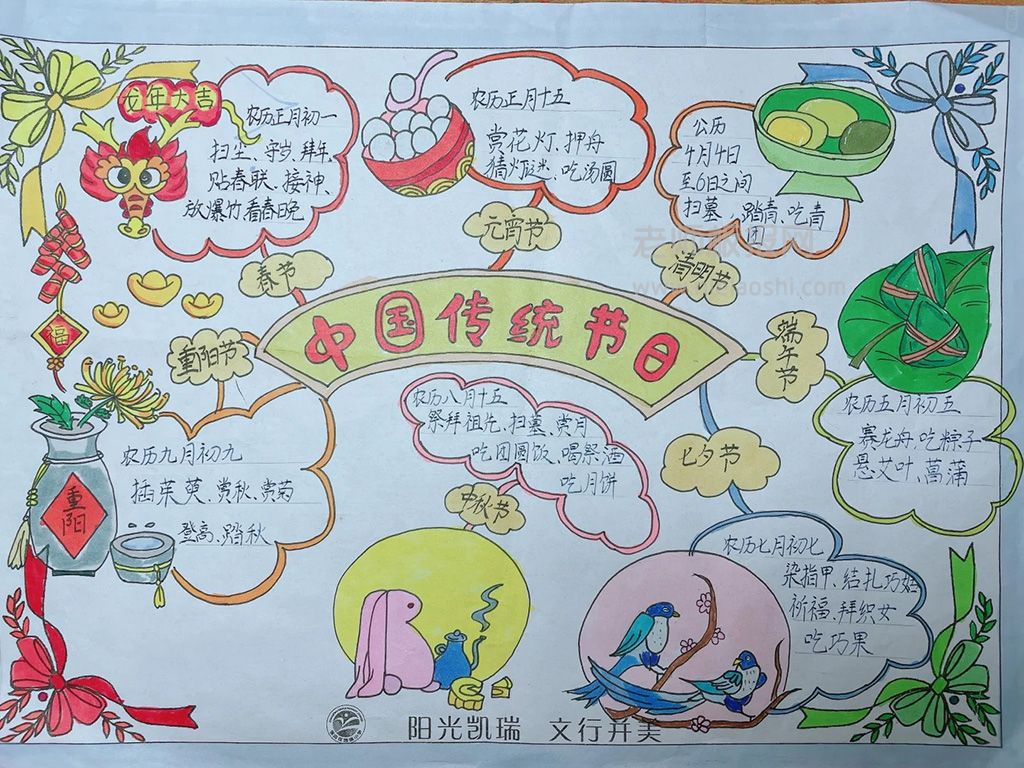 龙年大吉
农历正月初一
扫尘、守岁、拜年、
贴春联、接神、
放爆竹看春晚
春节
农历正月十五
赏花灯、押舟
猜灯谜、吃汤圆
元宵节
公历
4月4日
至6日之间
扫墓、踏青、吃青
团
清明节
中国传统节日
端午节
农历五月初五
赛龙舟、吃粽子
悬艾叶、菖蒲
福
重阳节
农历九月初九
插茱萸、赏秋、赏菊
登高、踏秋
重阳
农历八月十五
祭拜祖先、扫墓、赏月
吃团圆饭、喝祭酒
吃月饼
中秋节
七夕节
农历七月初七
染指甲、结扎巧姑
祈福、拜织女
吃巧果
阳光凯瑞 文行并美